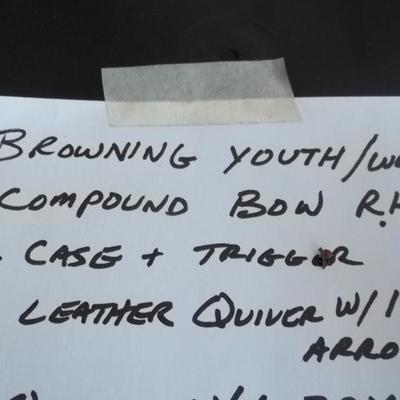 BROWNING YOUTH/
COMPOUND BOW R.H
CASE + TRIGGER
LEATHER QUIVER W/1
ARRO